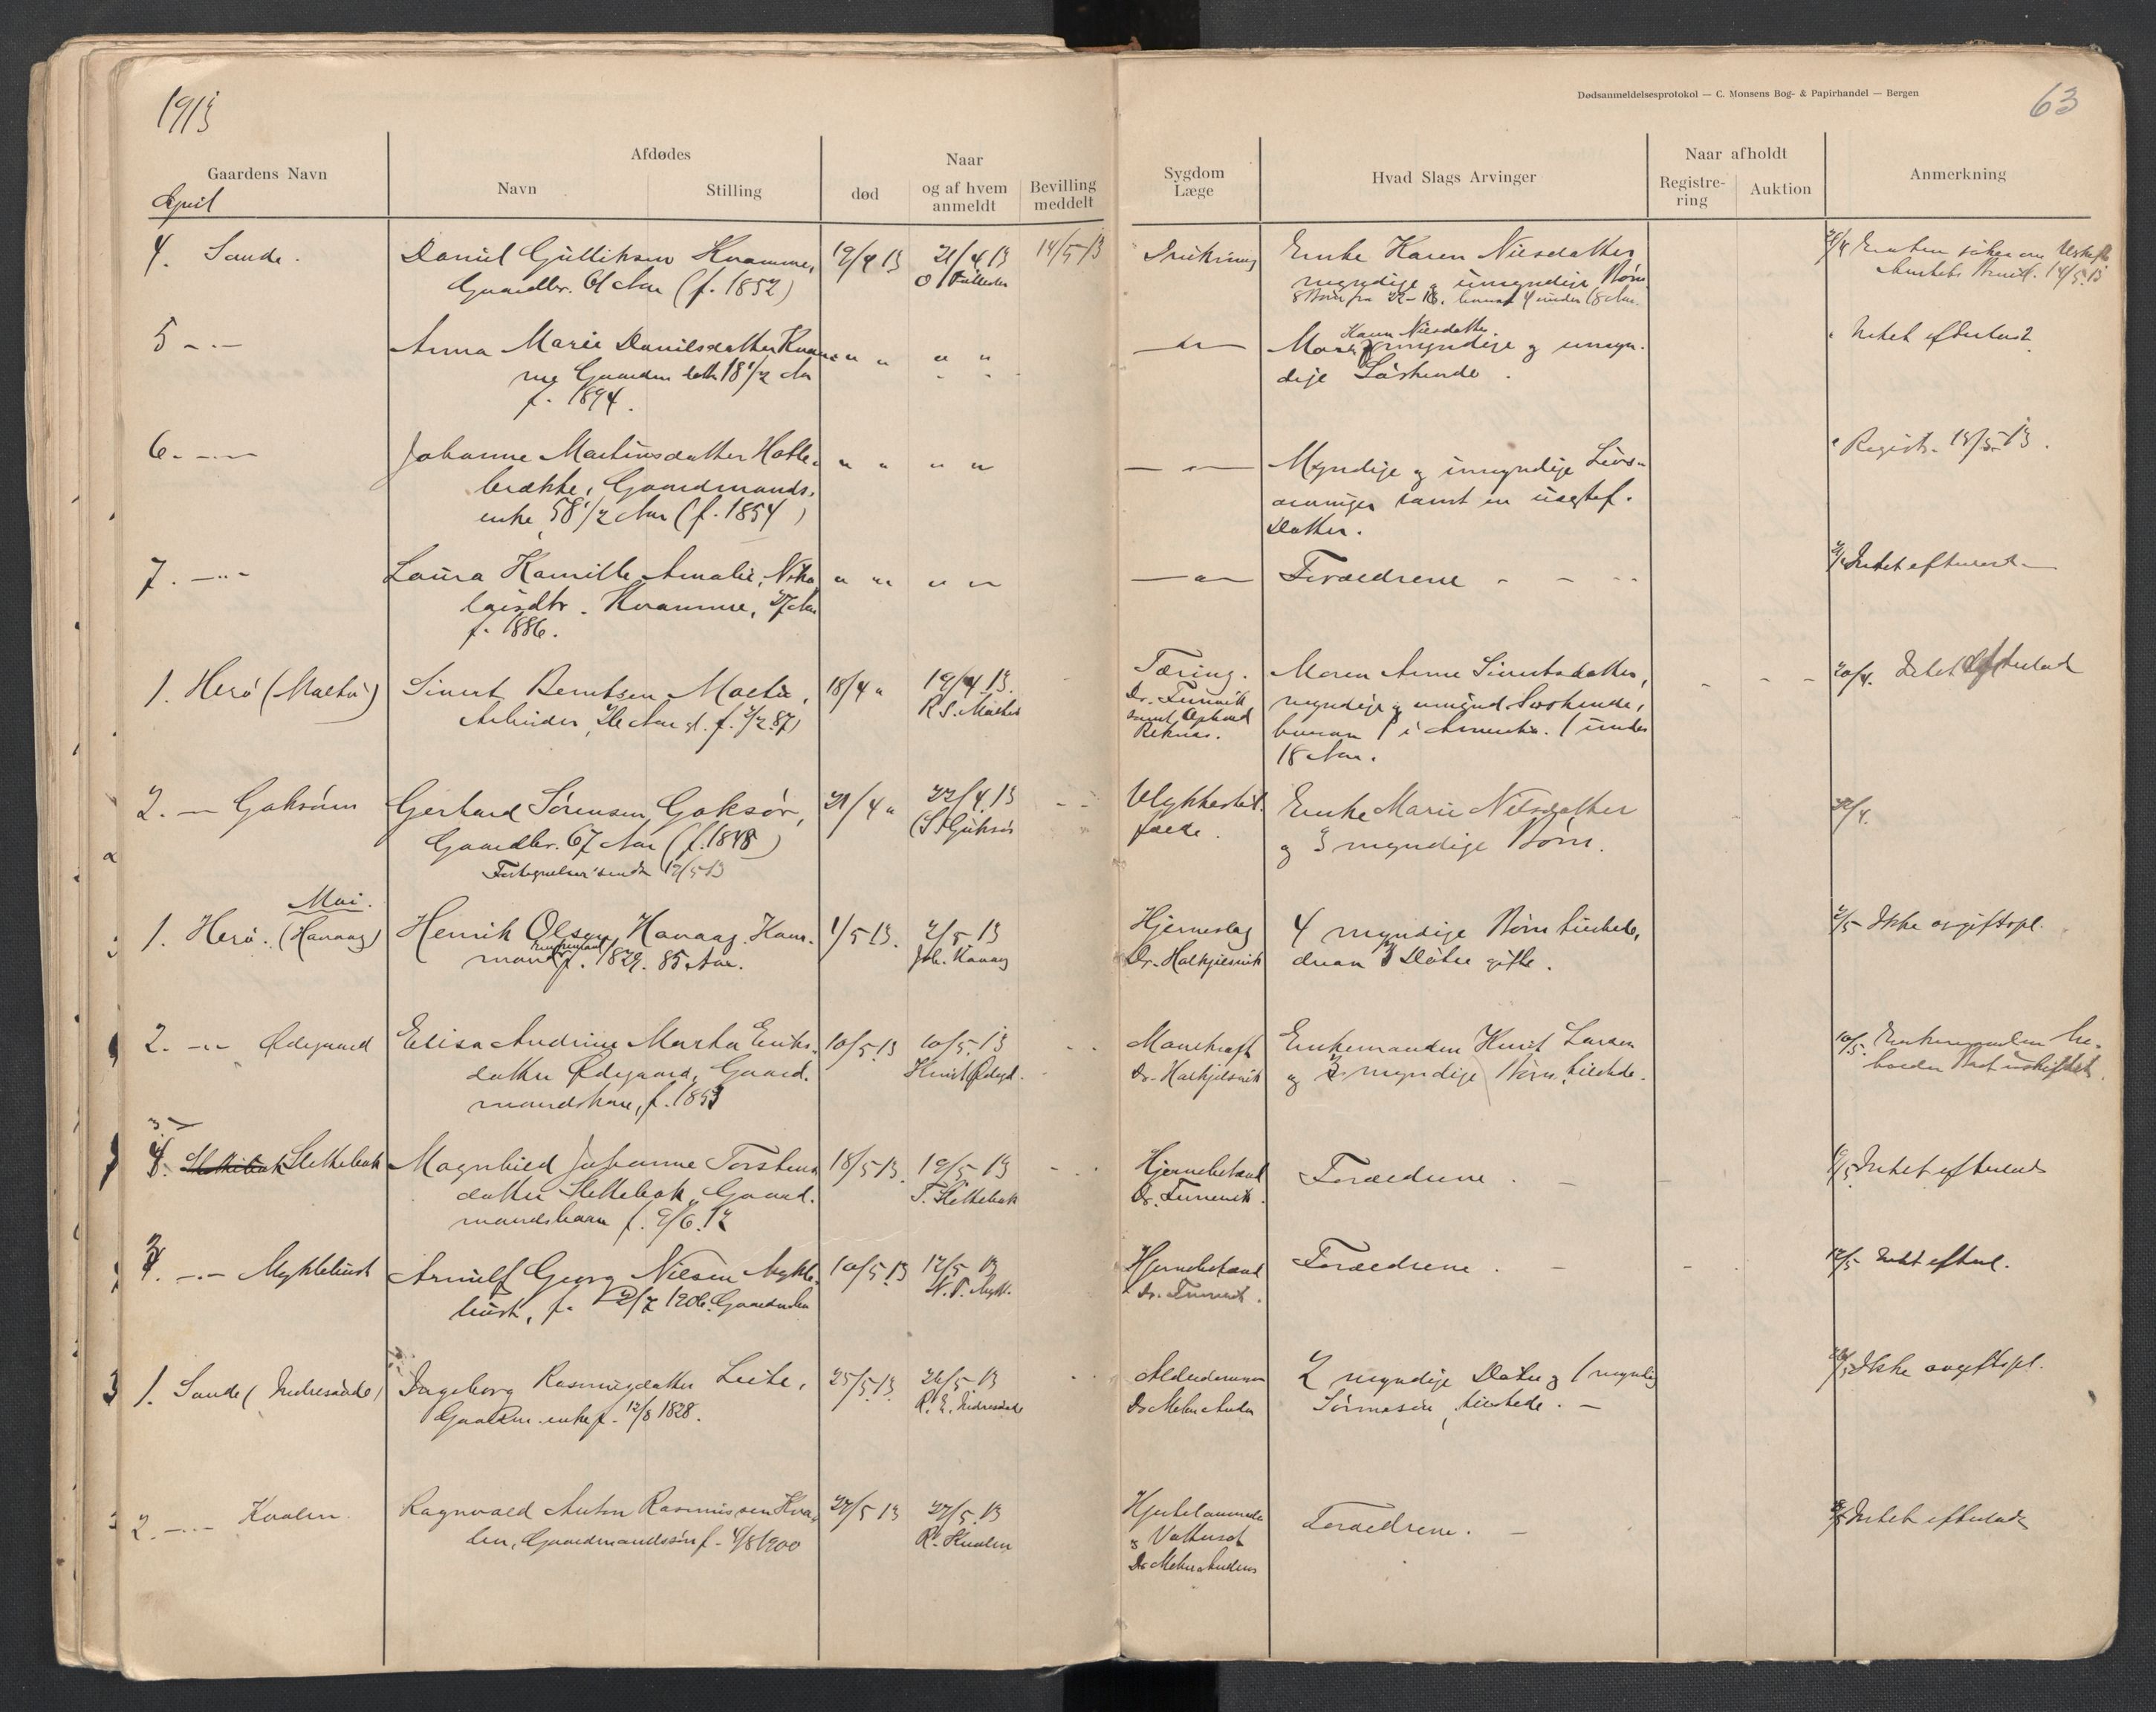 1913
Dødsanmeldelsesprotokol — C. Monsens Bog- & Papirhandel — Bergen
63
Gaardens Navn
Afdødes
Navn
Stilling
død
Naar
og af hvem
anmeldt
Bevilling
meddelt
Sygdom
Læge
Hvad Slags Arvinger
Naar afholdt
Registre-
ring
Auktion
Anmerkning
April
4. Sande.
Daniel Gulliksen Kvamme,
Gaardbr. 61 Aar (f. 1852)
19/4 13
21/4 13
14/5 13
Drukning
Enke Karen Nilsdatter
myndige & umyndige Børn
8 Børn fra 22-18. hvoraf 4 under 18 Aar.
14/5.13
5 -..-
Anna Marie Danielsdatter Kvam-
me Gaardm. datter 18 1/2 Aar
f. 1894.
" "
" "
— " —
Karen Nilsdatter.
Moren myndige & umyn-
dige Søskende.
Intet efterladt
6. -..-
Johanne Martinsdatter Hatle-
brække, Gaardmands-
enke, 58 1/2 Aar (f. 1854)
" "
" "
— " —
Myndige & umyndige Livs-
arvinger samt en uægtef.
Datter.
Registr. 13/5-13.
7. -..-
Laura Kamille Amalie Niko-
laisdtr. Kvamme, 27 Aar
f. 1886.
" "
" "
— " —
Forældrene
Intet efterladt
1. Herø (Moltu)
Sivert Berntsen Moltu,
Arbeider, 26 Aar gl. f. 7/2 87)
18/4 "
19/4 13.
R. S. Moltu
Tæring.
Dr.
samt Ophold
Reknæs.
Moren Anne Sivertsdatter,
myndige & umynd. Søskende,
hvoraf 1 i Amerika. 1 under
18 Aar.
20/4. Intet efterladt
2. — Goksøien
Gerhard Sørensen Goksør,
Gaardbr. 67 Aar (f. 1848)
Fortegnelse sendt 17/5 13
21/4 "
22/4.13
Ulykkestil-
fælde.
Enke Marie Nilsdatter
og 3 myndige Børn.
22/4.
Mai.
1. Herø. (Havaag)
Henrik Olsen Havaag. Kaar-
Enkemand
mand f. 1829. 85 Aar.
1/5 13.
2/5 13
Joh. Havaag
Hjerneslag
Dr. Halkjelsvik
4 myndige Børn tilstede,
deraf 3 Døtre gifte.
2/5 Ikke avgiftspl.
2. -..- Ødegaard
Elisa Andrine Marta Eriks-
datter Ødegaard, Gaard-
mandskone, f. 1853
10/5 13
10/5. 13
Knut Ødegd.
Mavekræft
Dr. Halkjelsvik
Enkemanden Knut Larsen
og 3 myndige Børn, tilstede.
10/5. Enkemanden be-
holder Boet uskiftet.
3
Slettebak
Magnhild Johanne Torstens-
datter Slettebak, Gaard-
mandsbarn f. 9/6.12
18/5 13.
19/5 13
T. Slettebak
Hjernebetænd
Dr.
Forældrene.
Intet efterladt
4. -..- Myklebust
Arnulf Georg Nilsen Mykle-
bust, f. 12/7 1906. Gaardm.
10/5 13
12/5 13
N. P. Mykl.
Hjernebetænd
Dr.
Forældrene.
12/5 Intet efterl.
1. Sande (Indresande)
Ingeborg Rasmusdatter Leite,
Gaardm. enke f. 12/8 1828.
25/5 13.
26/5 13
R. E. Indresande
Alderdommen
Dr. Mohn Andersen
2 myndige Døtre & 1 myndig
Sønnesøn, tilstede. —
26/5 Ikke avgiftspl.
2. -..- Kvalen.
Ragnvald Anton Rasmussen Kva-
len, Gaardmandssøn f. 4/8 1900
27/5 13
27/5. 13
R. Kvalen
& Vattersot
Dr. Mohn Andersen
Forældrene. —
Intet efterladt